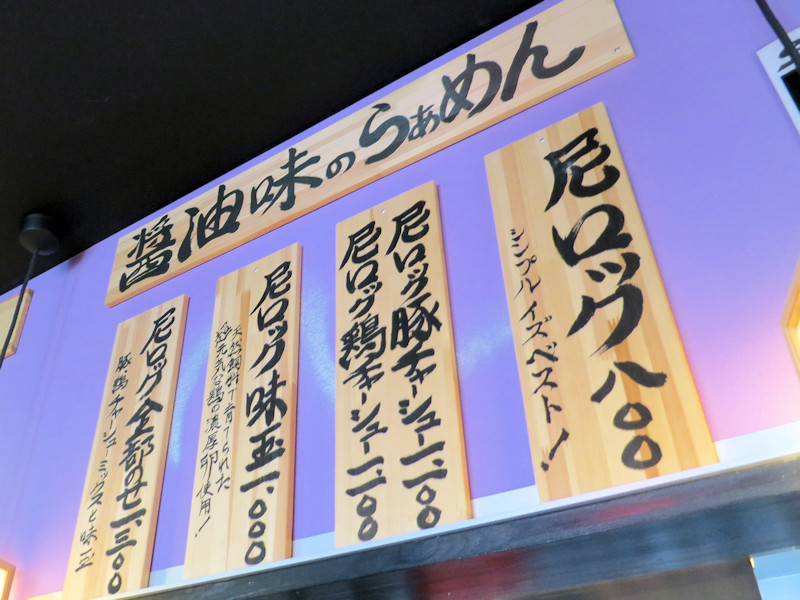 醤油味のらぁめん
尼ロック八〇〇
シンプルイズベスト!
尼ロック豚チャーシュー一、一〇〇
尼ロック鶏チャーシュー一、一〇〇
尼ロック味玉一、〇〇〇
天然飼料で育てられた
元気な鶏の濃厚卵使用!
尼ロック全部のせ一、三〇〇
豚、鶏チャーシューミックスと味玉